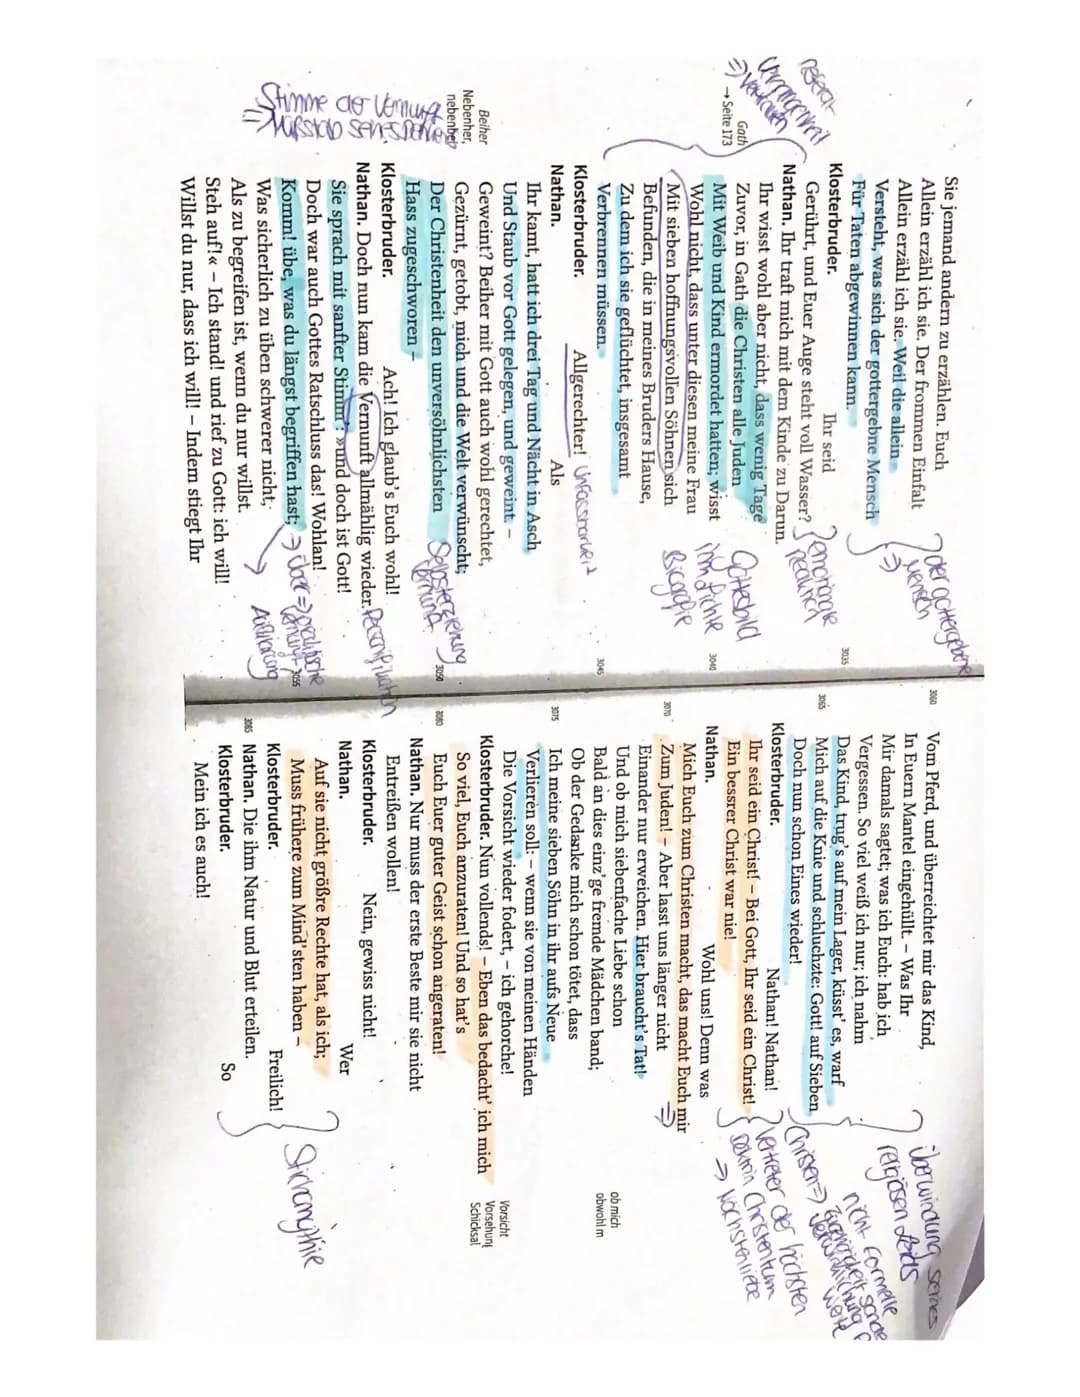 Sie jemand andern zu erzählen. Euch
Allein erzähl ich sie. Der frommen Einfalt
Allein erzähl ich sie. Weil die allein
Versteht, was sich der gottergebne Mensch
Für Taten abgewinnen kann.
der gottergebene
⇒ Mensch
Klosterbruder. Ihr seid
3035
Gerührt, und Euer Auge steht voll Wasser?
emotionale
Nathan. Ihr traft mich mit dem Kinde zu Darun.
Ihr wisst wohl aber nicht, dass wenig Tage
Gath
→ Seite 173
Zuvor, in Gath die Christen alle Juden
Mit Weib und Kind ermordet hatten; wisst
3040
Wohl nicht, dass unter diesen meine Frau
Mit sieben hoffnungsvollen Söhnen sich
Befunden, die in meines Bruders Hause,
Zu dem ich sie geflüchtet, insgesamt
Verbrennen müssen.
Biografie
3045
Klosterbruder. Allgerechter!
Nathan. Als
Ihr kamt, hatt ich drei Tag und Nächt in Asch
Und Staub vor Gott gelegen, und geweint. –
Beiher
Nebenher,
nebenbei
Geweint? Beiher mit Gott auch wohl gerechtet,
Gezürnt, getobt, mich und die Welt verwünscht;
Der Christenheit den unversöhnlichsten
3050
Hass zugeschworen –
Klosterbruder. Ach! Ich glaub's Euch wohl!
Nathan. Doch nun kam die Vernunft allmählig wieder.
Personifikation
Stimme der Vernunft
Sie sprach mit sanfter Stimm': »und doch ist Gott!
Doch war auch Gottes Ratschluss das! Wohlan!
Komm! übe, was du längst begriffen hast;
3055
Was sicherlich zu üben schwerer nicht,
Als zu begreifen ist, wenn du nur willst.
Aufklärung
Steh auf!« – Ich stand! und rief zu Gott: ich will!
Willst du nur, dass ich will! – Indem stiegt Ihr
3060
Vom Pferd, und überreichtet mir das Kind,
In Euern Mantel eingehüllt. – Was Ihr
Mir damals sagtet; was ich Euch: hab ich
Vergessen. So viel weiß ich nur; ich nahm
Das Kind, trug's auf mein Lager, küsst' es, warf
3065
Mich auf die Knie und schluchzte: Gott! auf Sieben
Doch nun schon Eines wieder!
Überwindung seines
religiösen Leids
Klosterbruder. Nathan! Nathan!
Ihr seid ein Christ! – Bei Gott, Ihr seid ein Christ!
Ein bessrer Christ war nie!
nicht formelle
Vertreter der höchsten
⇒ Nächstenliebe
Nathan. Wohl uns! Denn was
Mich Euch zum Christen macht, das macht Euch mir
3070
Zum Juden! – Aber lasst uns länger nicht
Einander nur erweichen. Hier braucht's Tat!
Und ob mich siebenfache Liebe schon
ob mich
obwohl m
Bald an dies einz'ge fremde Mädchen band;
Ob der Gedanke mich schon tötet, dass
3075
Ich meine sieben Söhn in ihr aufs Neue
Verlieren soll: – wenn sie von meinen Händen
Die Vorsicht wieder fodert, – ich gehorche!
Vorsicht
Vorsehung
Schicksal
Klosterbruder. Nun vollends! – Eben das bedacht' ich mich
So viel, Euch anzuraten! Und so hat's
3080
Euch Euer guter Geist schon angeraten!
Nathan. Nur muss der erste Beste mir sie nicht
Entreißen wollen!
Klosterbruder. Nein, gewiss nicht!
Nathan. Wer
Auf sie nicht größre Rechte hat, als ich;
Muss frühere zum Mind'sten haben –
Klosterbruder. Freilich!
3085
Nathan. Die ihm Natur und Blut erteilen.
Klosterbruder. So
Mein ich es auch!
Stichomythie